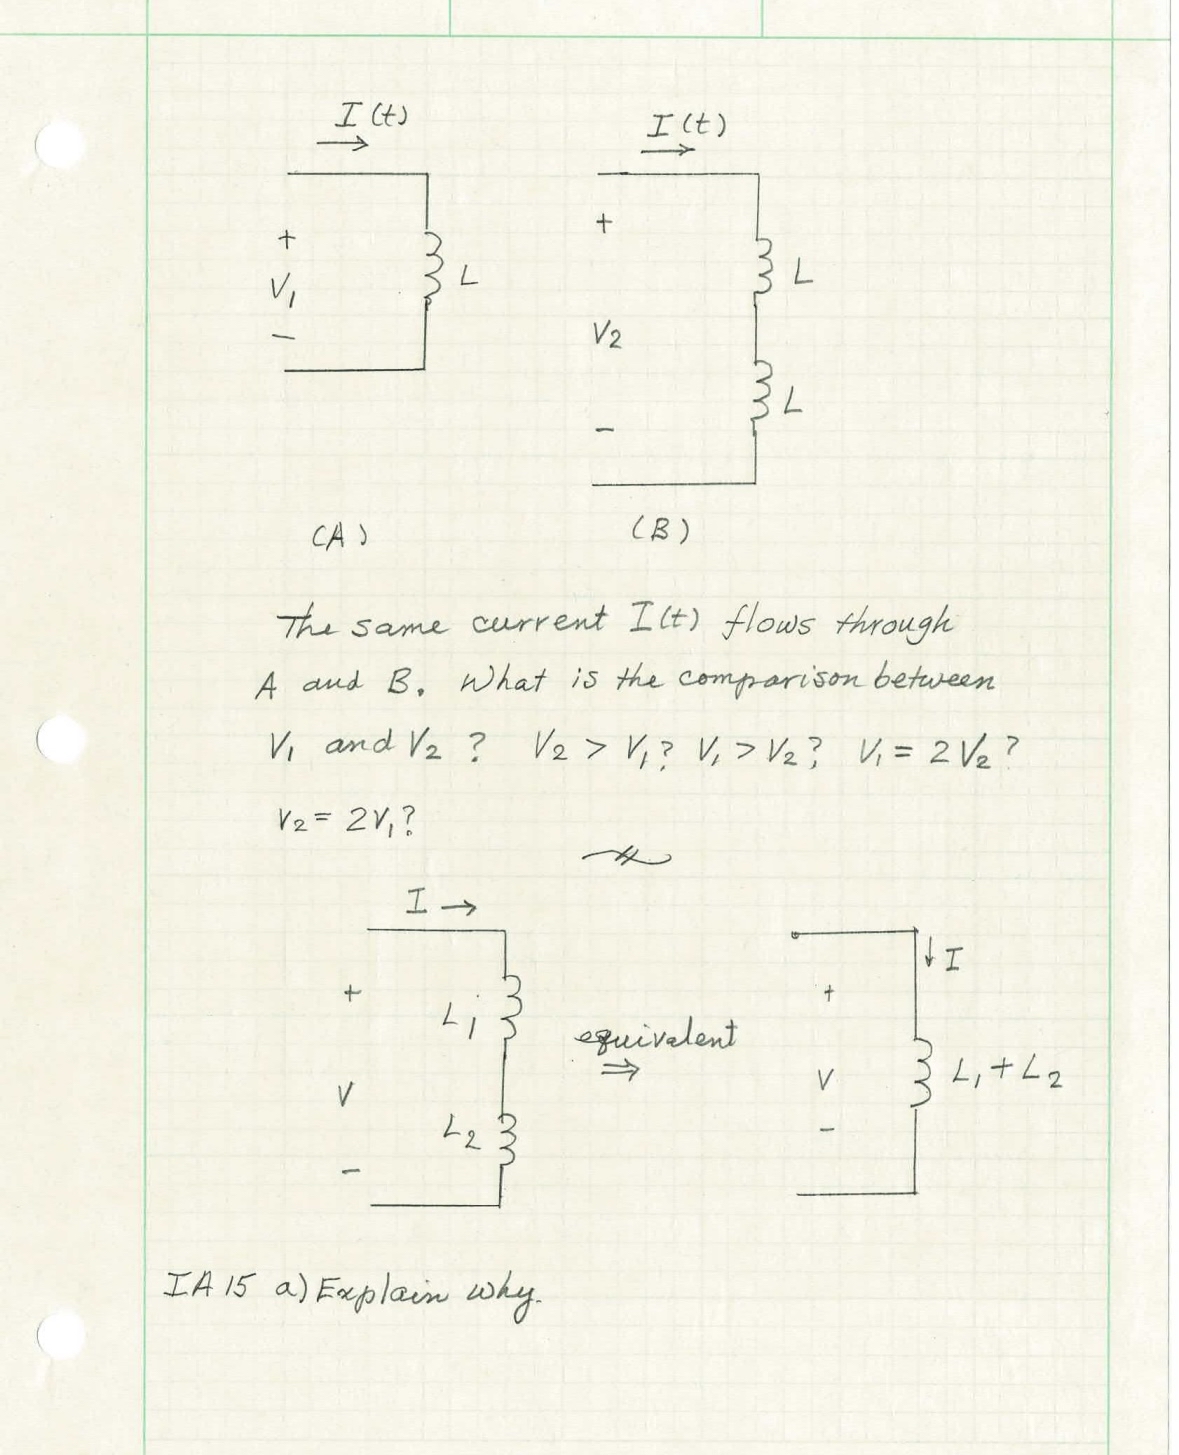 I(t)
I(t)
+
V1
-
L
+
V2
-
L
L
(A)
(B)
The same current I(t) flows through
A and B. What is the comparison between
V1 and V2? V2 > V1? V1 > V2? V1 = 2V2?
V2 = 2V1?
I →
+
V
-
L1
L2
equivalent
⇒
↓ I
+
V
-
L1 + L2
IA15 a) Explain why.